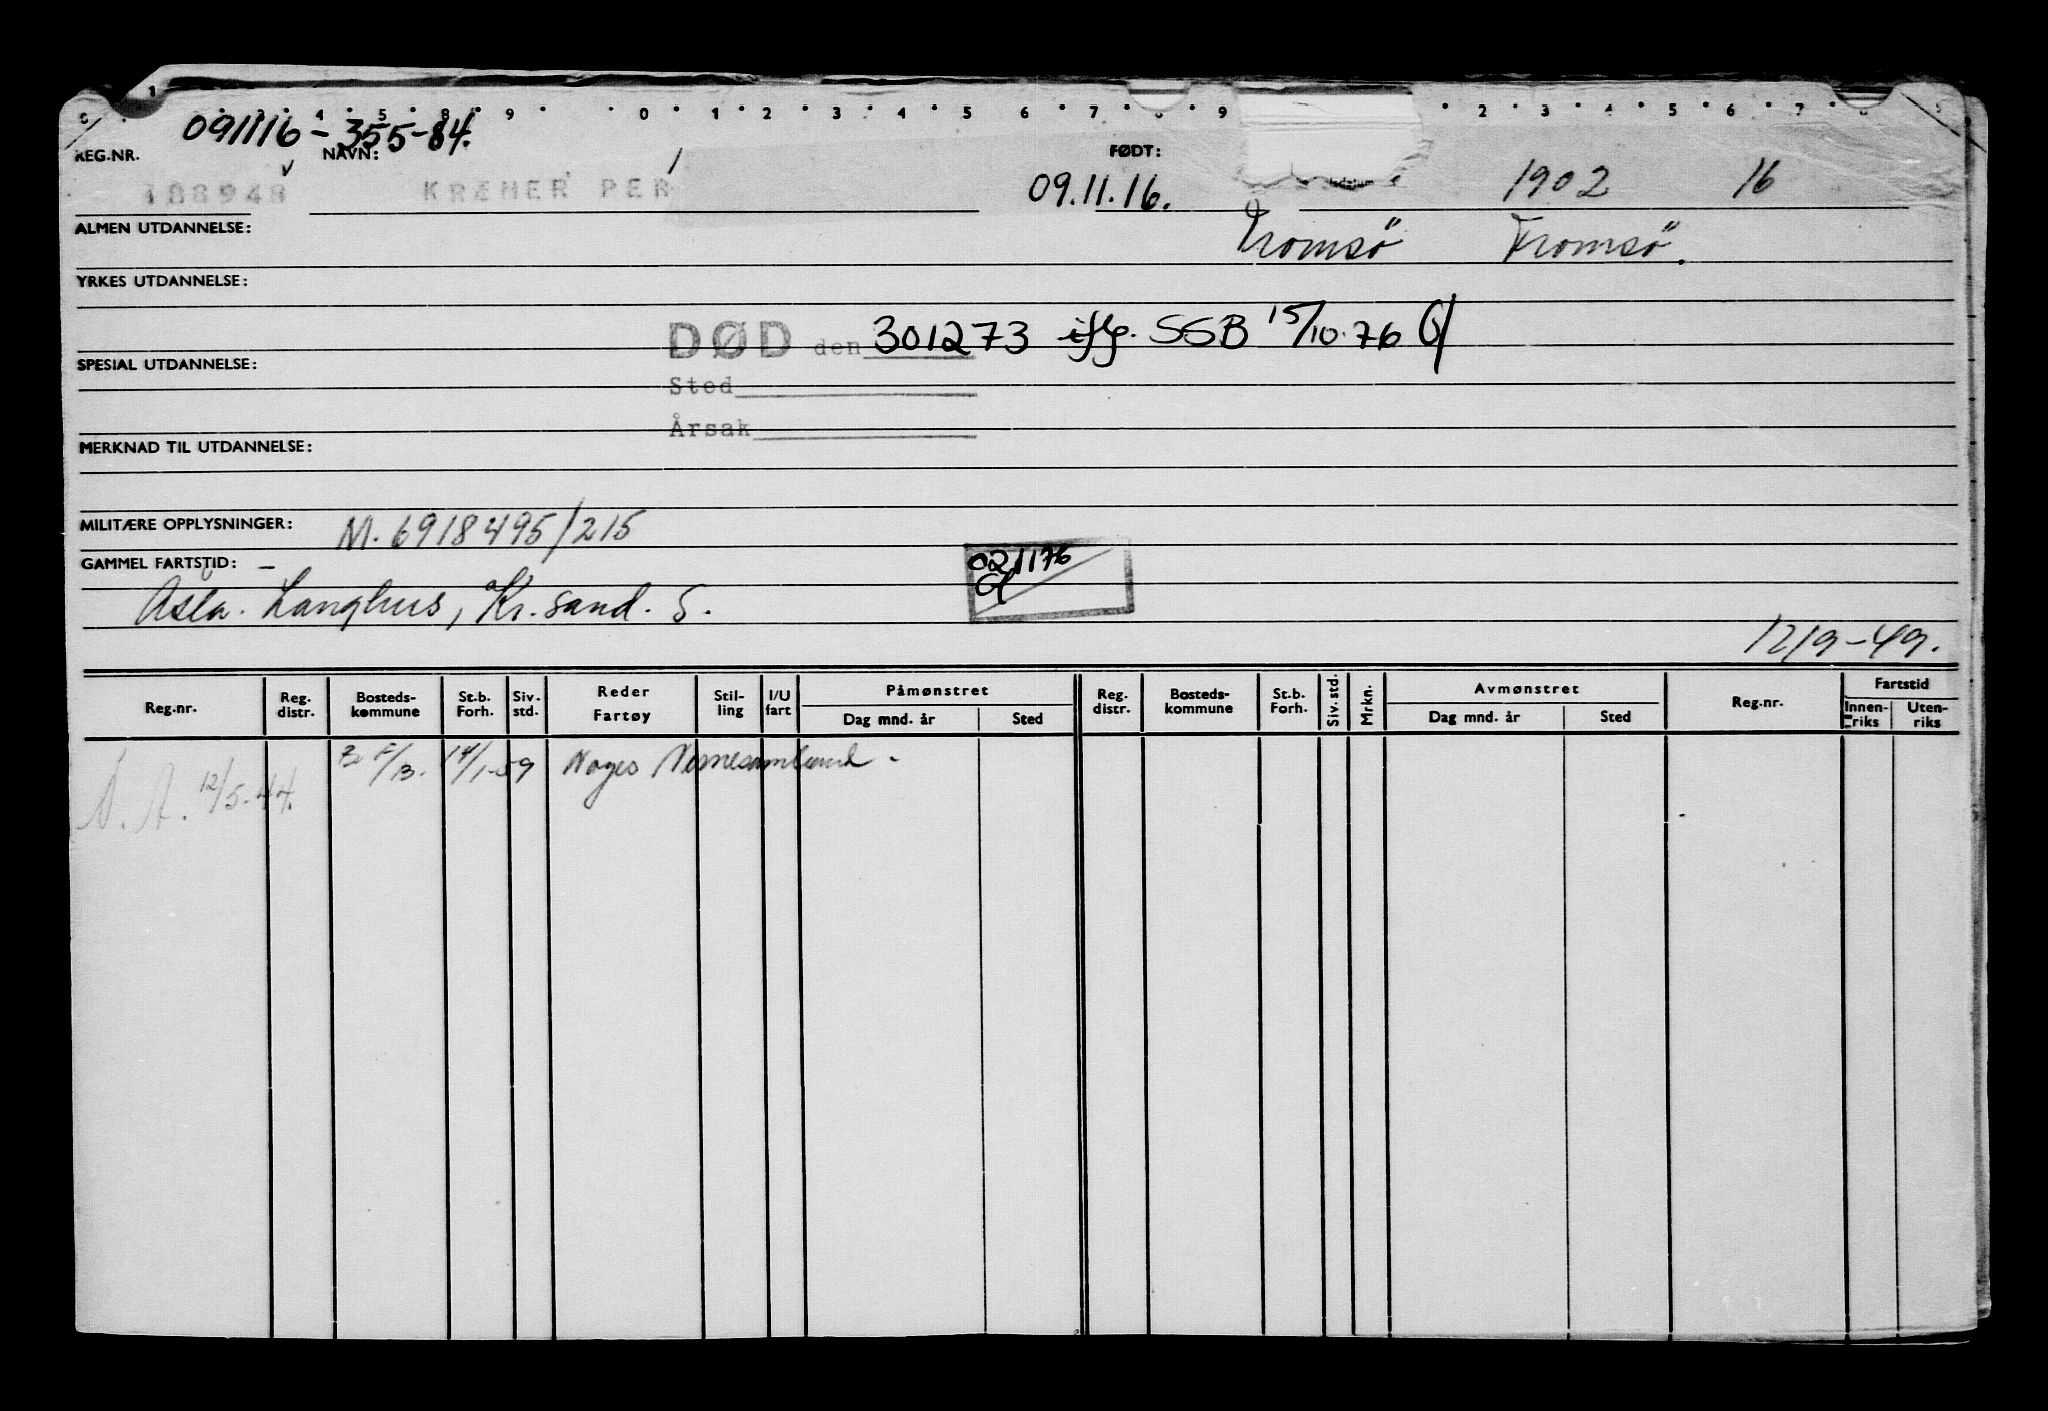 1 0 4 5 8 9 0 1 2 3 4 5 6 7 8 9 2 3 4 5 6 7 8 9
091116-355-84.
REG.NR. NAVN: FØDT:
188948 KRÆMER PER 09.11.16. 1902 16
ALMEN UTDANNELSE: Tromsö Tromsö.
YRKES UTDANNELSE:
DØD den 301273 iflg. SSB 15/10.76
SPESIAL UTDANNELSE:
Sted
Årsak
MERKNAD TIL UTDANNELSE:
MILITÆRE OPPLYSNINGER: M. 6918495/215
GAMMEL FARTSTID: —
021176
Langhus, Kr.sand. S.
12/9-49.
Reg.nr. Reg. distr. Bosteds-kommune St.b. Forh. Siv. std. Reder Fartøy Stil-ling I/U fart Påmønstret Dag mnd. år Sted Reg. distr. Bosteds-kommune St.b. Forh. Siv. std. Mrkn. Avmønstret Dag mnd. år Sted Reg.nr. Fartstid Innen-riks Uten-riks
14/1-59
N.A. 12/5-44.